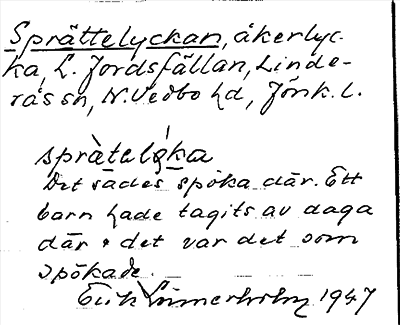 Sprättelyckan, åkerlyc-
ka, L. Jordsfällan, Linde-
rås sn, N. Vedbo hd, Jönk. l.
spràtelo̧ka
Det sades spöka där. Ett
barn hade tagits av daga
där o det var det som
spökade.
Erik Linnerholm 1947